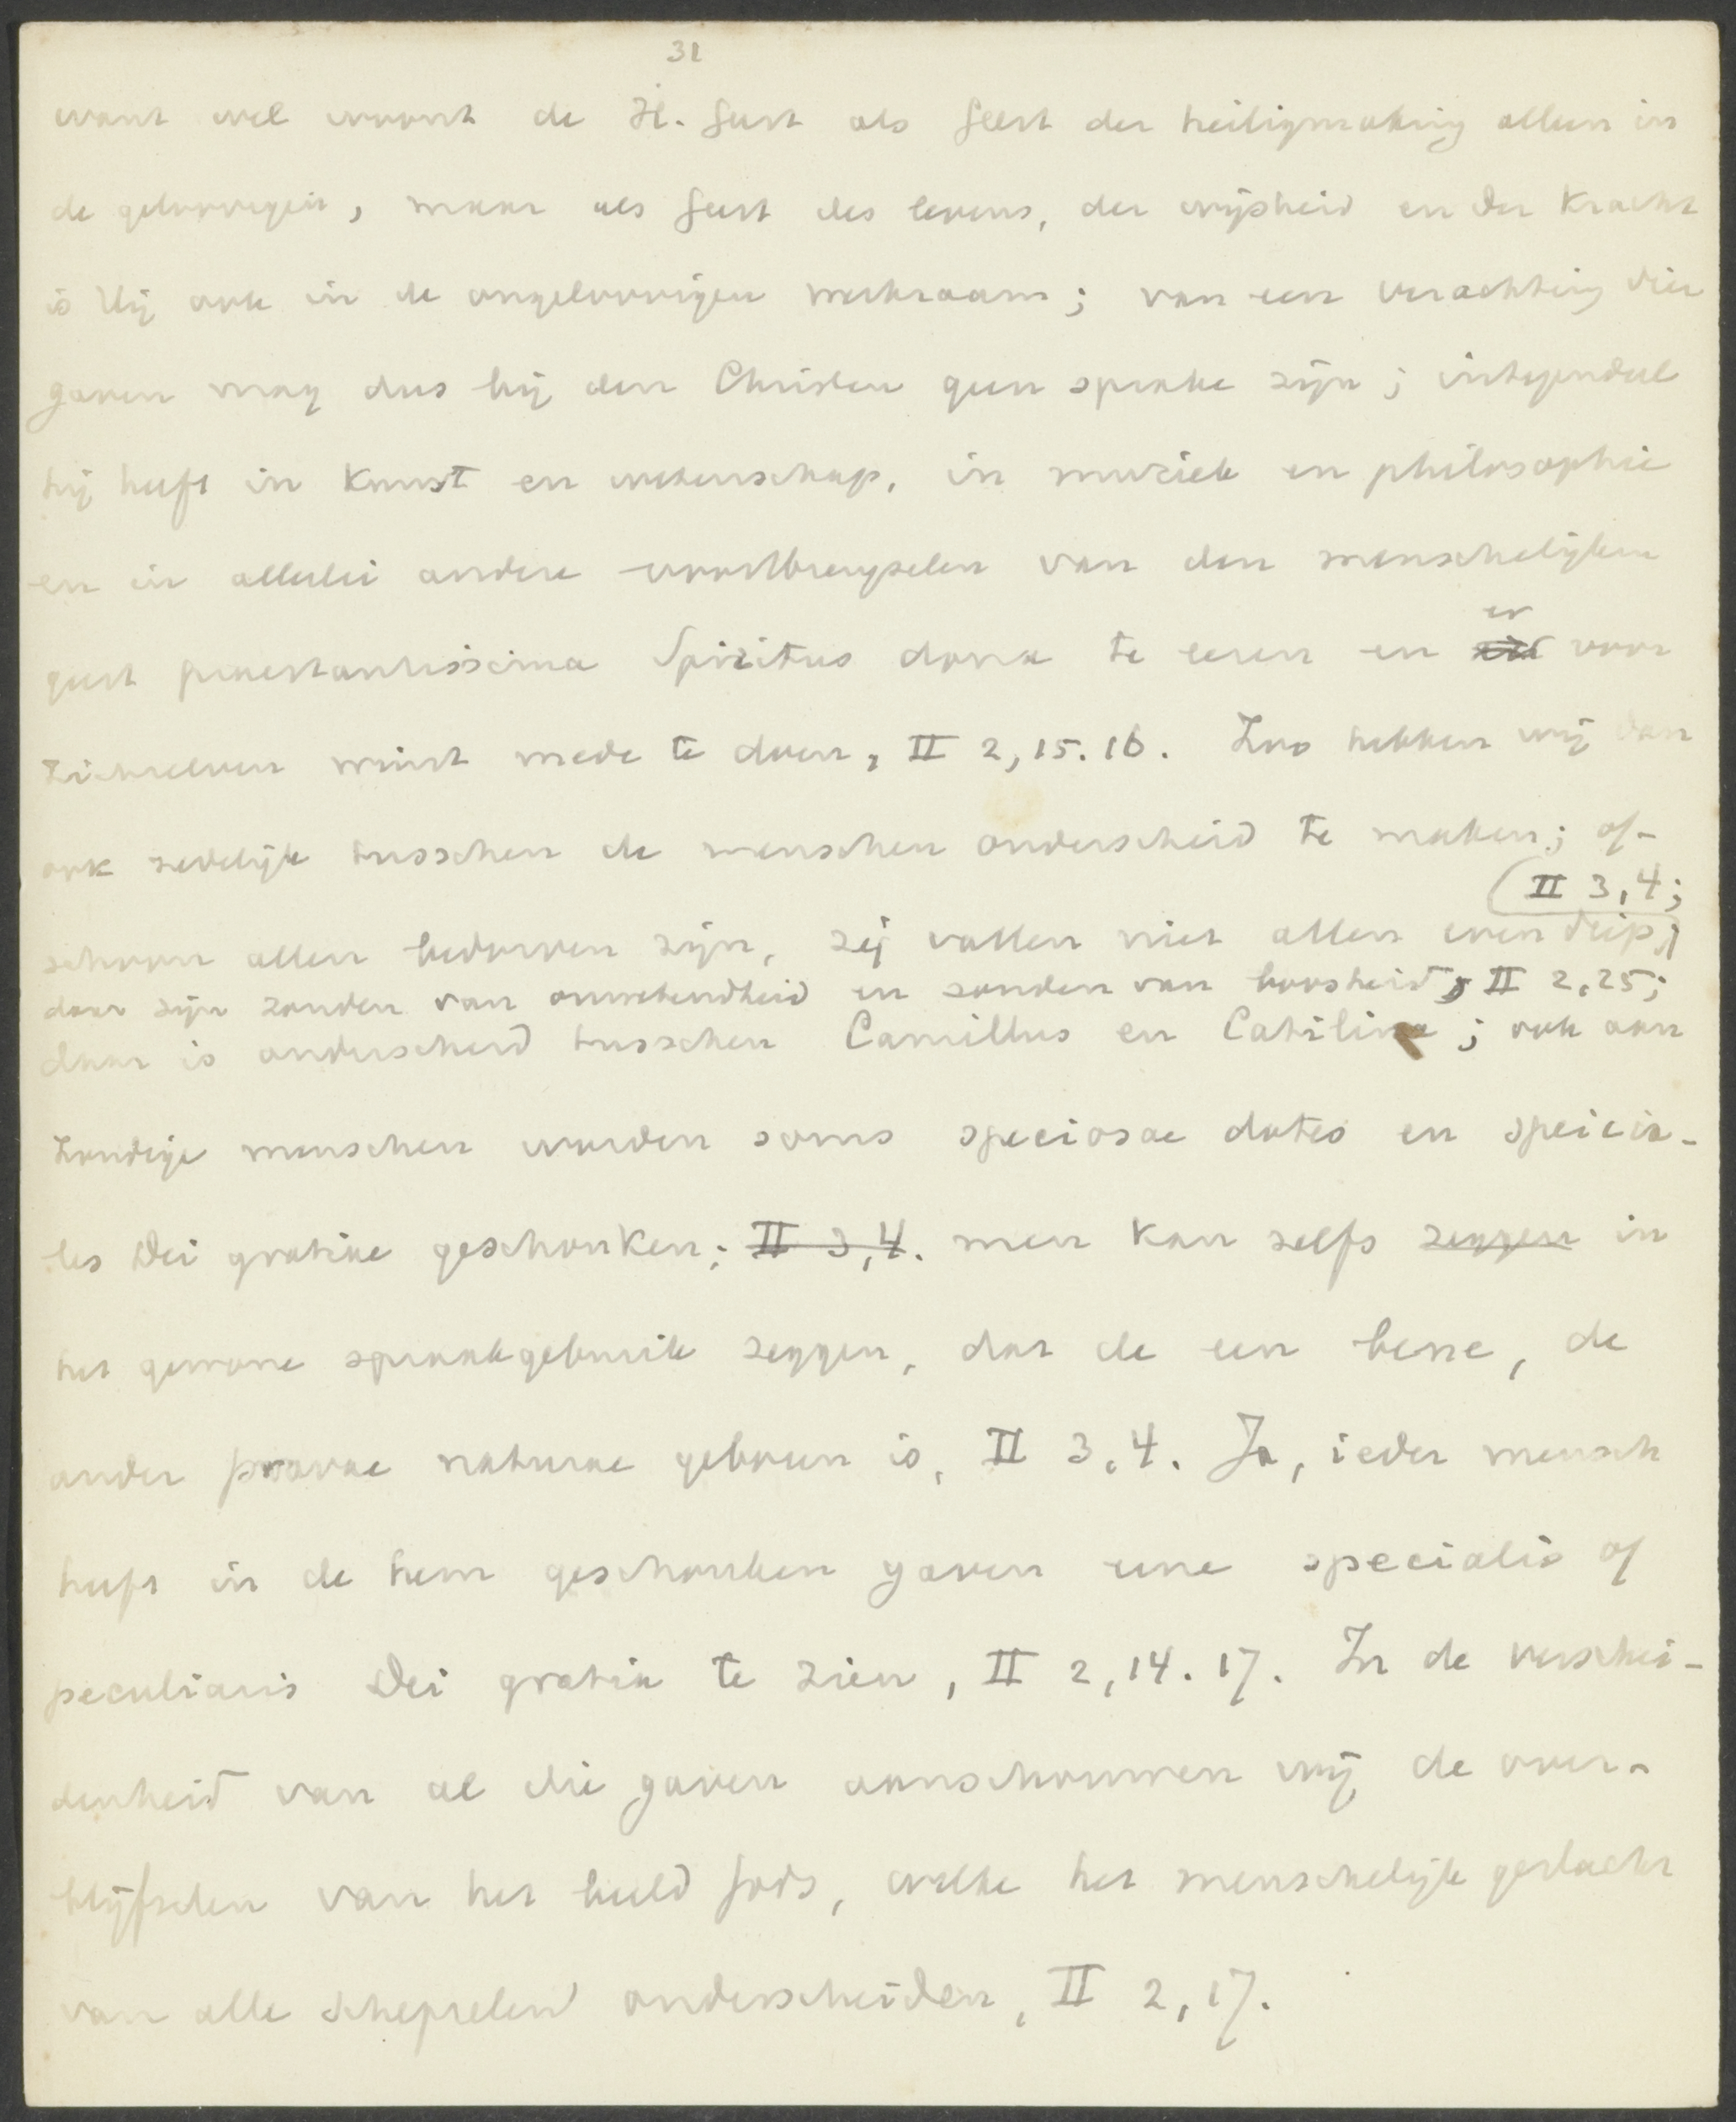 31
want wel woont de H. Geest als Geest der heiligmaking alleen in
de geloovigen, maar als Geest des levens, der wijsheid en der kracht
is Hij ook in de ongeloovigen werkzaam; van een verachting dier
gaven mag dus bij den Christen geen sprake zijn; integendeel
hij heeft in kunst en wetenschap, in muziek en philosophie
en in allerlei andere voortbrengselen van den menschelijken
er
geest praestantissima Spiritus dona te eeren en voor
zichzelven winst mede te doen, II 2,15.16. Zoo hebben wij dan
ook zedelijk tusschen de menschen onderscheid te maken; of-
II 3,4;
schoon allen bedorven zijn, zij vallen niet allen even diep;
daar zijn zonden van onwetendheid en zonden van boosheid, II 2,25;
daar is onderscheid tusschen Camillus en Catilina; ook aan
zondige menschen worden soms speciosae dotes en specia-
les Dei gratiae geschonken; II 3,4. men kan zelfs zeggen in
het gewone spraakgebruik zeggen, dat de een bene, de
ander pravae naturae geboren is, II 3,4. Ja, ieder mensch
heeft in de hem geschonken gaven eene specialis of
peculiaris Dei gratia te zien, II 2,14.17. In de verschei-
denheid van al die gaven aanschouwen wij de over-
blijfselen van het beeld Gods, welke het menschelijk geslacht
van alle schepselen onderscheiden, II 2,17.